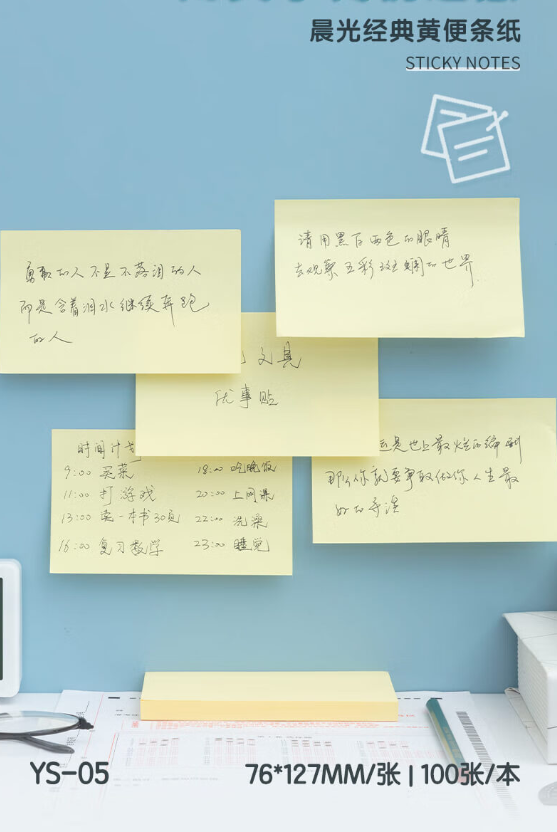 晨光经典黄便条纸
STICKY NOTES
请用黑白两色的眼睛
去观察五彩斑斓的世界
勇敢的人不是不落泪的人
而是含着泪水继续奔跑
的人
文具
优事贴
是世上最烂的编剧
那么你就要争取做你人生最
好的导演
时间计划
9:00 买菜
18:00 吃晚饭
11:00 打游戏
20:00 上网课
13:00 读一本书30页
22:00 洗澡
16:00 复习数学
23:00 睡觉
YS-05
76*127MM/张 | 100张/本